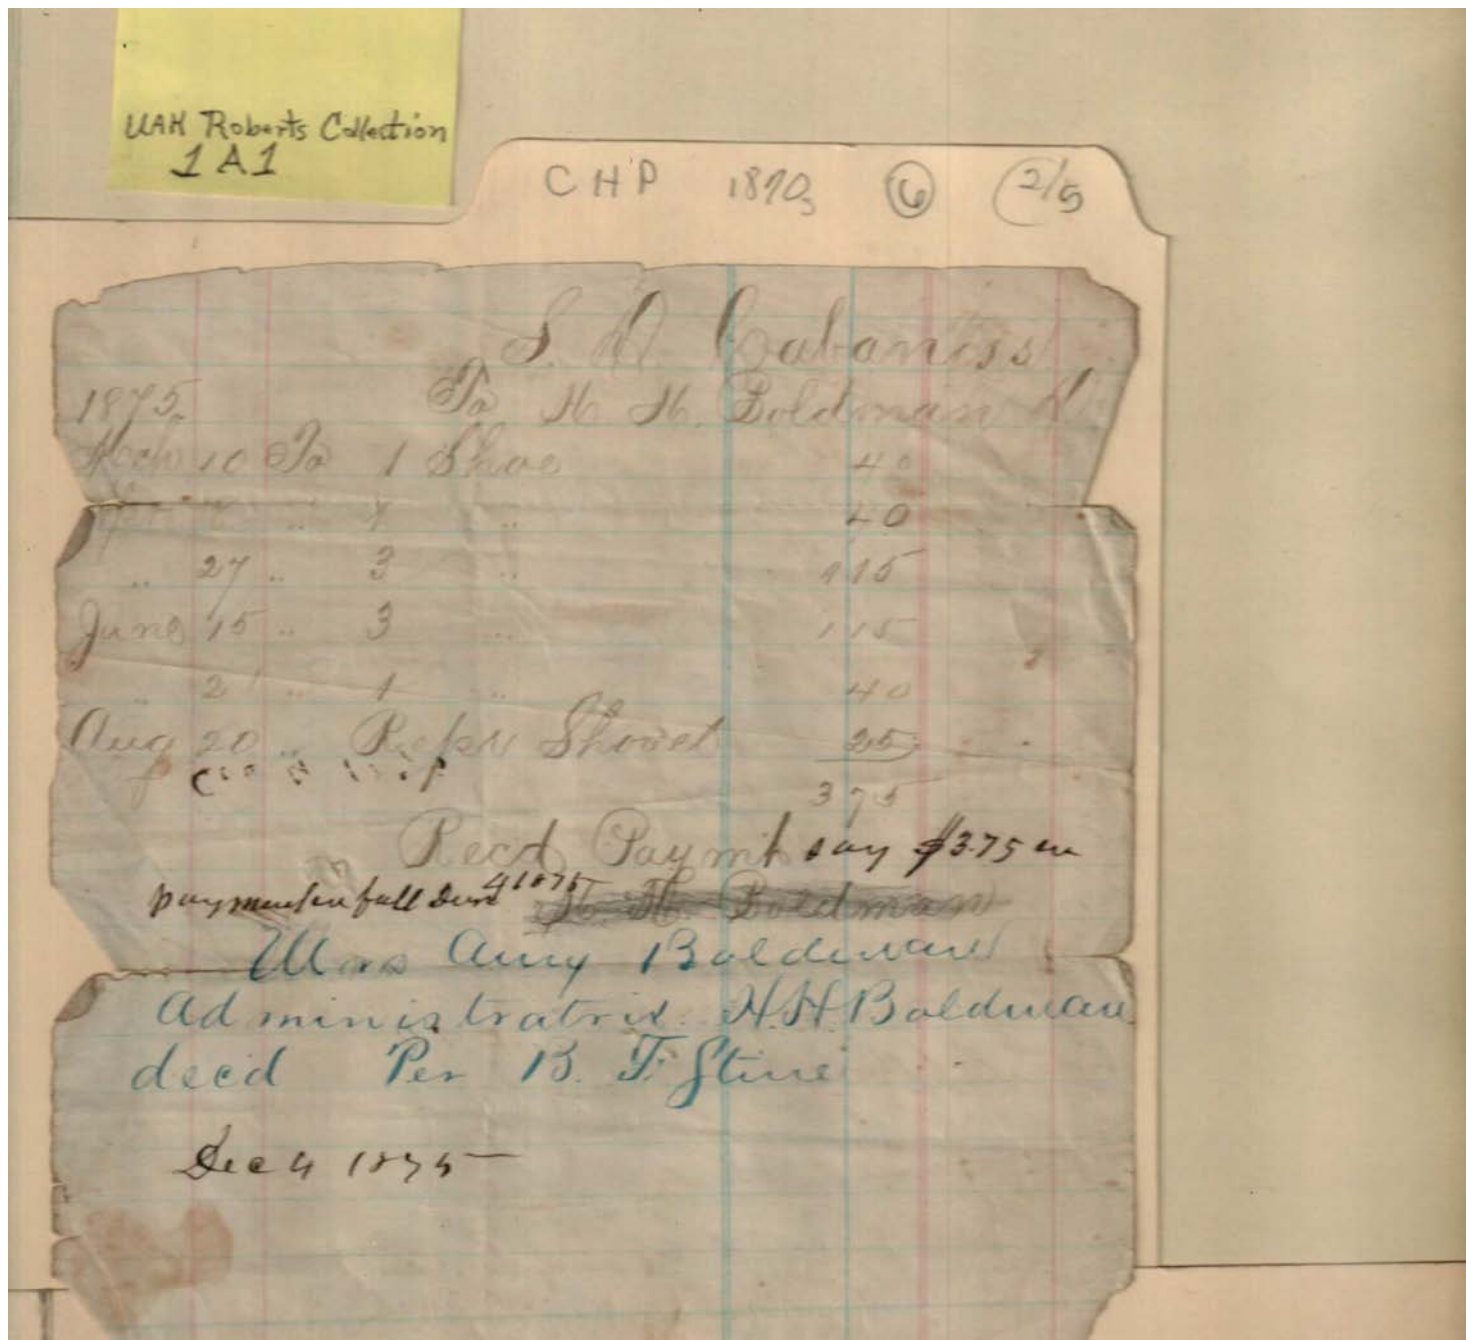 UAH Roberts Collection
1A1
CHP 1870s 6 2/5
S. D. Cabaniss
1875 To H. H. Boldman D
Mch 10 To 1 Shoe 40
" " 1 " 40
" 27 " 3 " 115
June 15 " 3 " 115
" 2 " 1 " 40
Aug 20 " Repr Shovel 25
375
Recd Paymt say $3.75 in
payment in full Dec 4 1875 H. H. Boldman
Mrs Amy Boldman
Administratrix H.H. Boldman
decd Per B. F. Stine
Dec 4 1875